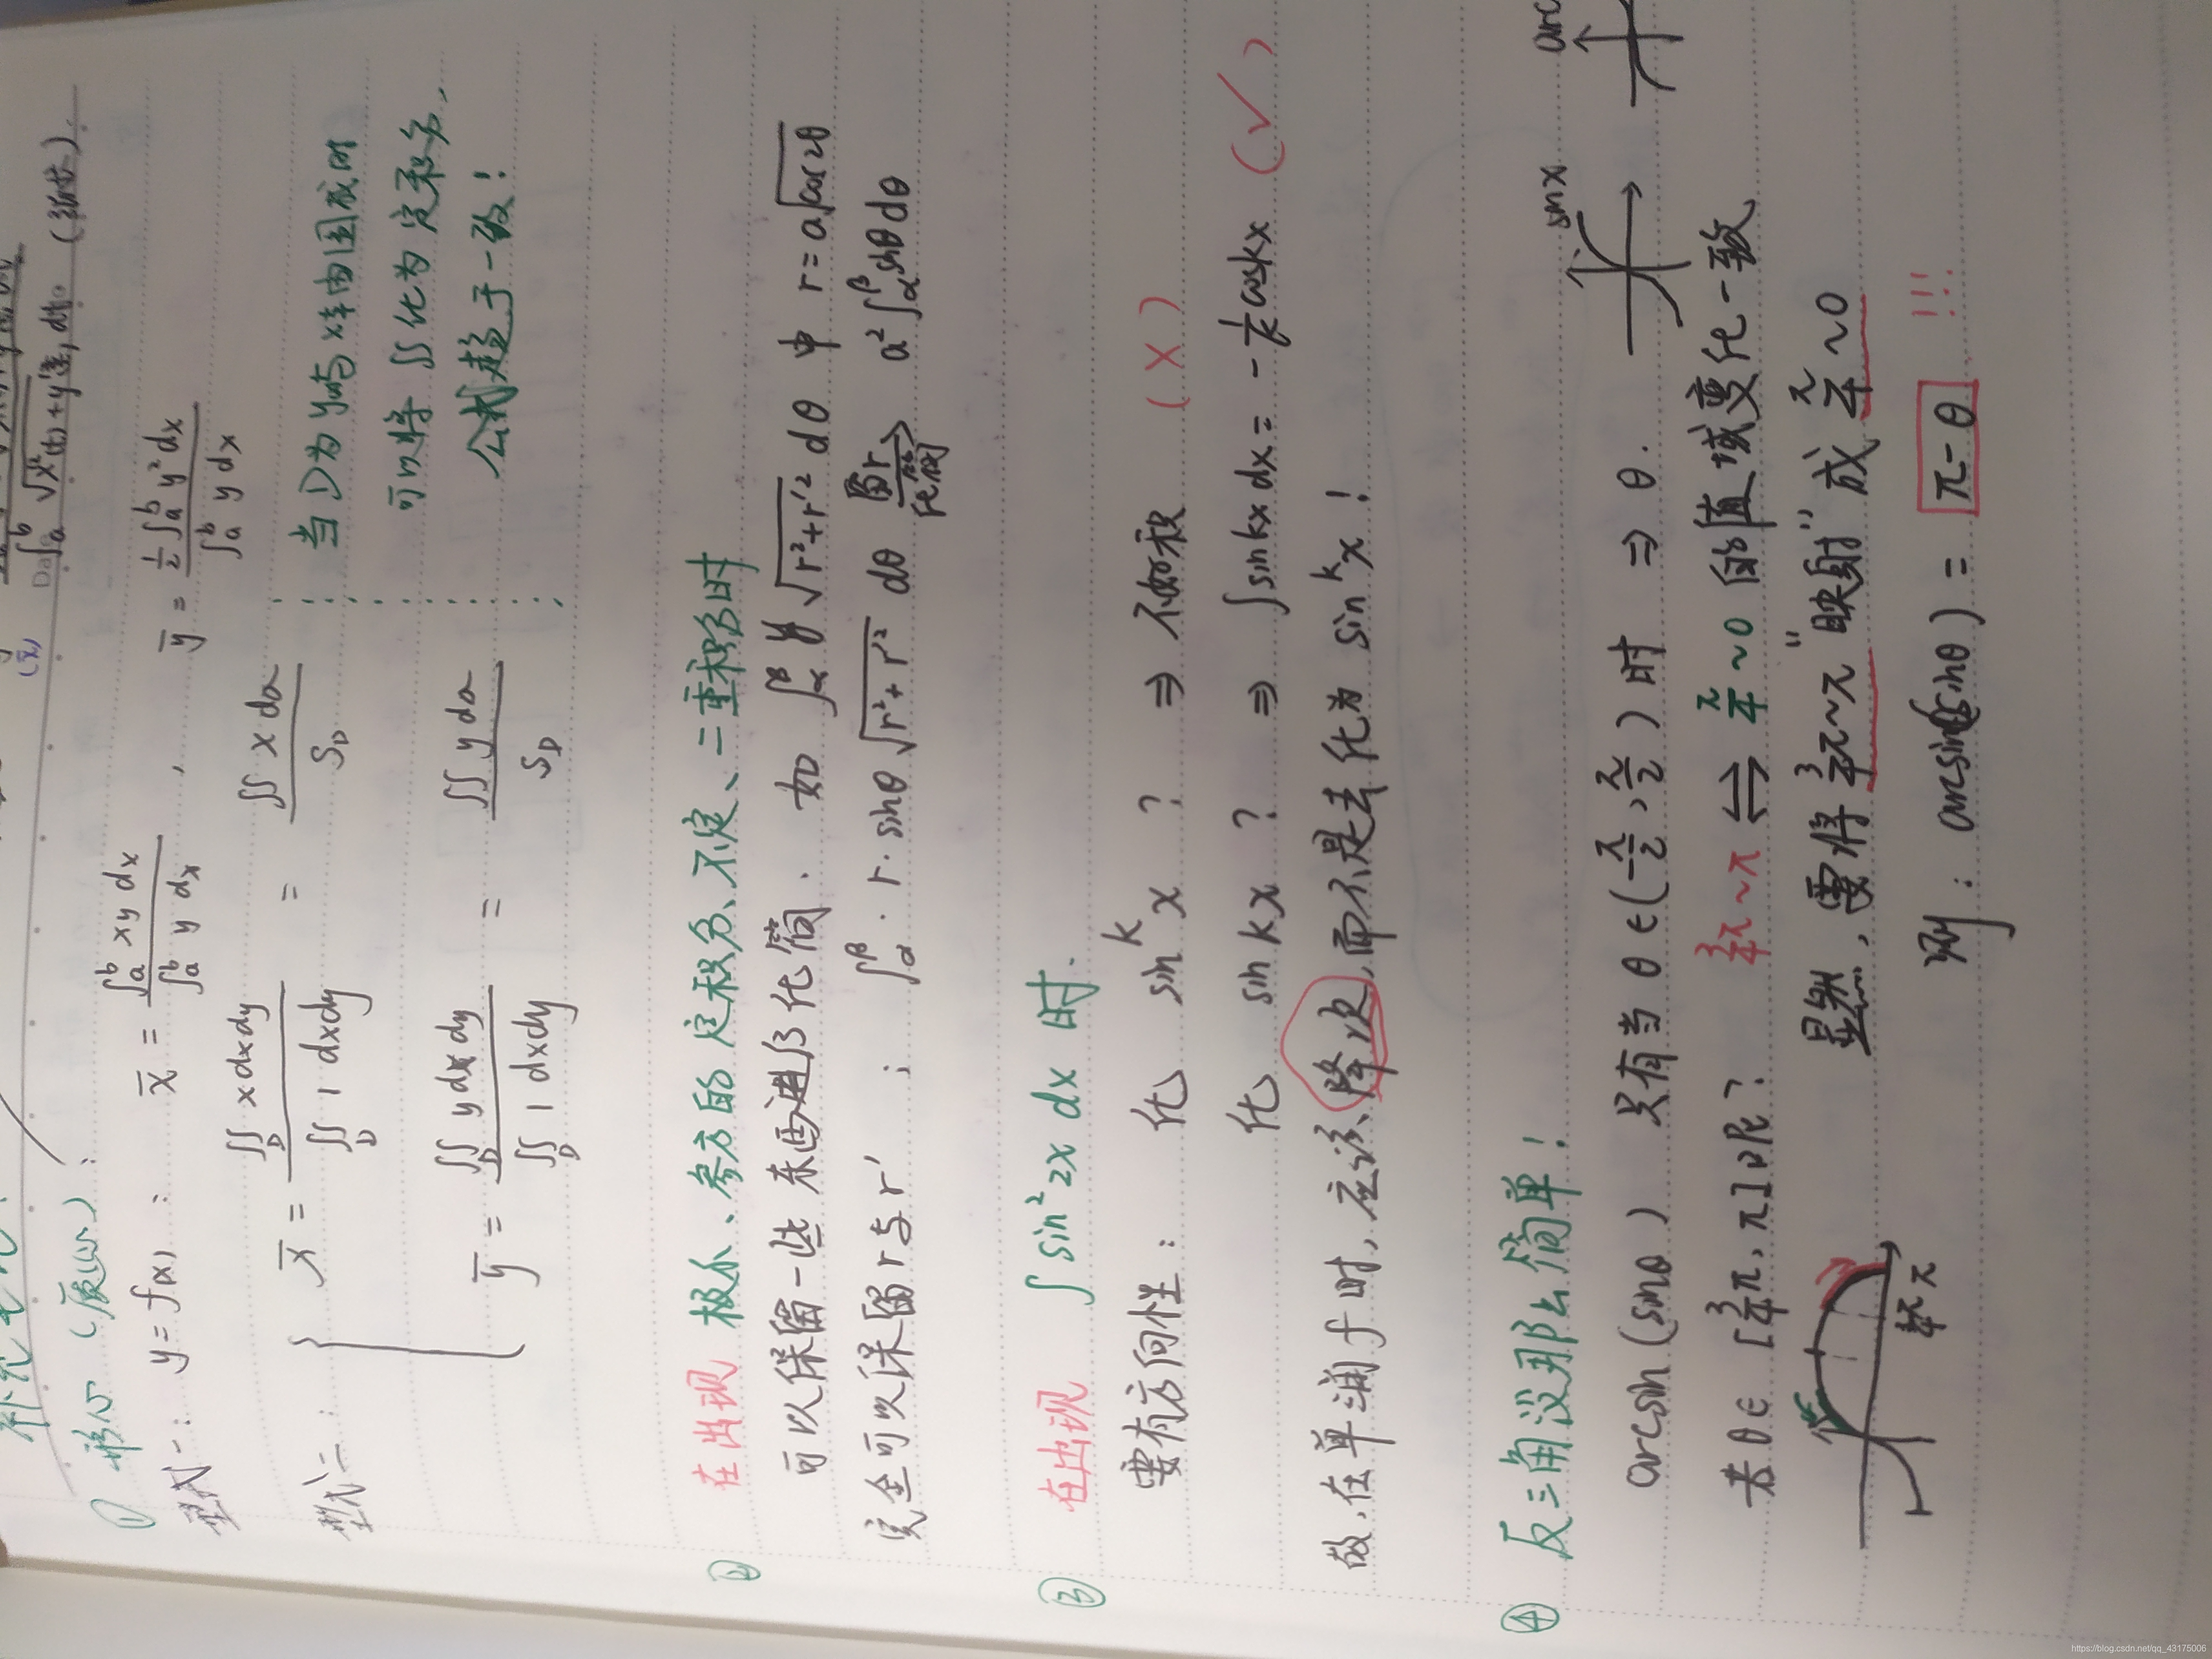 ∫ₐᵇ √(x'²(t)+y'²(t)) dt
① 形心（质心）：
型式一： y=f(x)： x̄ = ∫ₐᵇ xy dx / ∫ₐᵇ y dx ， ȳ = ½∫ₐᵇ y² dx / ∫ₐᵇ y dx
型式二： { x̄ = ∬_D x dxdy / ∬_D 1 dxdy = ∬ x dσ / S_D
ȳ = ∬_D y dxdy / ∬_D 1 dxdy = ∬ y dσ / S_D
当D为y与x轴围成时
可以将∬化为定积分，
公式趋于一致！
② 在出现 极小、参方的定积分、不定、二重积分时
可以保留一些东西进行化简．如 ∫_α^β y √(r²+r'²) dθ 中 r=a√cos2θ
完全可以保留r与r' ； ∫_α^β · r·sinθ √(r²+r'²) dθ 留r/化简→ a²∫_α^β sinθ dθ
③ 在出现 ∫ sin²2x dx 时．
要有方向性： 化 sinᵏx ？ ⇒ 不好积 （×）
化 sin kx ？ ⇒ ∫ sin kx dx = -1/k cos kx （✓）
故，在单调于时，应该降次，而不是去化为 sinᵏx！
④ 反三角没那么简单！
arcsin(sinθ) 只有当 θ∈(-π/2,π/2)时 ⇒ θ．
sinx
arc
若 θ∈[3/4π, π]呢？ 3/4π~π ⇌ π/4~0 的值域变化一致
显然，要将 3/4π~π "映射"成 π/4~0
3/4π π
则： arcsin(sinθ) = π-θ !!!
https://blog.csdn.net/qq_43175006